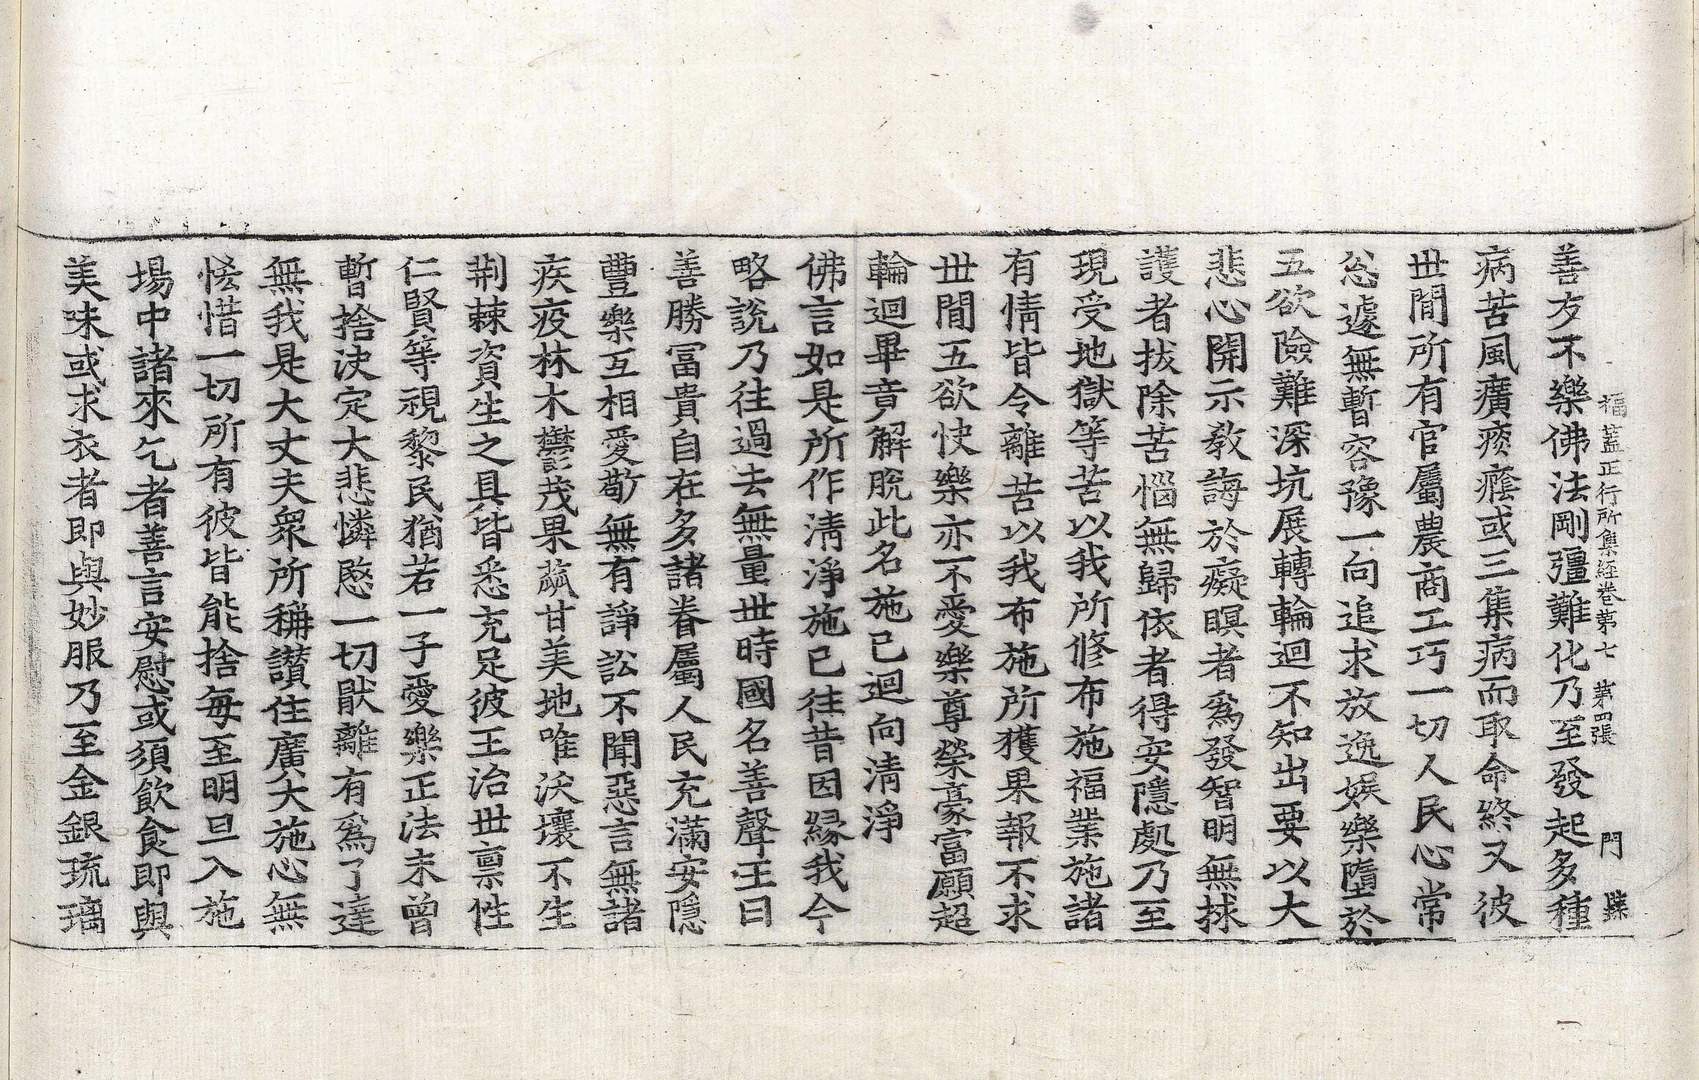 福蓋正行所集經卷第七　第四張　門
善友不樂佛法剛彊難化乃至發起多種
病苦風癀痰癊或三集病而取命終又彼
世間所有官屬農商工巧一切人民心常
忩遽無暫容豫一向追求放逸娛樂墮於
五欲險難深坑展轉輪迴不知出要以大
悲心開示教誨於癡暝者爲發智明無捄
護者拔除苦惱無歸依者得安隱處乃至
現受地獄等苦以我所修布施福業施諸
有情皆令離苦以我布施所獲果報不求
世間五欲快樂亦不愛樂尊榮豪富願超
輪迴畢竟解脫此名施已迴向清淨
佛言如是所作清淨施已往昔因縁我今
略說乃往過去無量世時國名善聲王曰
善勝冨貴自在多諸眷屬人民充滿安隱
豐樂互相愛敬無有諍訟不聞惡言無諸
疾疫林木欝茂果蓏甘美地唯沃壤不生
荆棘資生之具皆悉充足彼王治世禀性
仁賢等視黎民猶若一子愛樂正法未曾
暫捨決定大悲憐愍一切猒離有爲了達
無我是大丈夫衆所稱讃住廣大施心無
悋惜一切所有彼皆能捨每至明旦入施
場中諸來乞者善言安慰或須飲食即與
美味或求衣者即與妙服乃至金銀琉璃